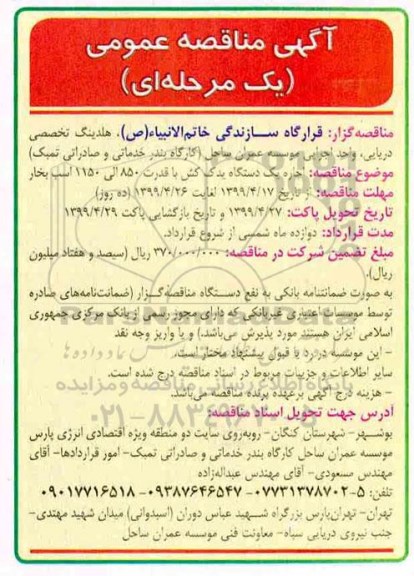 آگهی مناقصه عمومی
(یک مرحله‌ای)
مناقصه‌گزار: قرارگاه سازندگی خاتم‌الانبیاء(ص)، هلدینگ تخصصی
دریایی، واحد اجرایی موسسه عمران ساحل (کارگاه بندر خدماتی و صادراتی تمبک)
موضوع مناقصه: اجاره یک دستگاه یدک کش با قدرت ۸۵۰ الی ۱۱۵۰ اسب بخار
مهلت مناقصه: از تاریخ ۱۳۹۹/۴/۱۷ لغایت ۱۳۹۹/۴/۲۶ (ده روز)
تاریخ تحویل پاکت: ۱۳۹۹/۴/۲۷ و تاریخ بازگشایی پاکت ۱۳۹۹/۴/۲۹
مدت قرارداد: دوازده ماه شمسی از شروع قرارداد.
مبلغ تضمین شرکت در مناقصه: ۳۷۰/۰۰۰/۰۰۰ ریال (سیصد و هفتاد میلیون
ریال).
به صورت ضمانتنامه بانکی به نفع دستگاه مناقصه‌گزار (ضمانت‌نامه‌های صادره
توسط موسسات اعتباری غیربانکی که دارای مجوز رسمی از بانک مرکزی جمهوری
اسلامی ایران هستند مورد پذیرش می‌باشد.) و یا واریز وجه نقد
- این موسسه در رد یا قبول پیشنهاد مختار است.
سایر اطلاعات و جزییات مربوط در اسناد مناقصه درج شده است.
- هزینه درج آگهی برعهده برنده مناقصه می‌باشد.
آدرس جهت تحویل اسناد مناقصه:
بوشهر- شهرستان کنگان- روبه‌روی سایت دو منطقه ویژه اقتصادی انرژی پارس
موسسه عمران ساحل کارگاه بندر خدماتی و صادراتی تمبک- امور قراردادها- آقای
مهندس مسعودی- آقای مهندس عبداله‌زاده
تلفن: ۵-۰۷۷۳۱۳۷۸۷۰۲ -۰۹۳۸۷۶۴۶۵۴۷ -۰۹۰۱۷۷۱۶۵۱۸
تهران- تهران‌پارس بزرگراه شهید عباس دوران (اسپدوانی) میدان شهید مهتدی-
جنب نیروی دریایی سپاه- معاونت فنی موسسه عمران ساحل